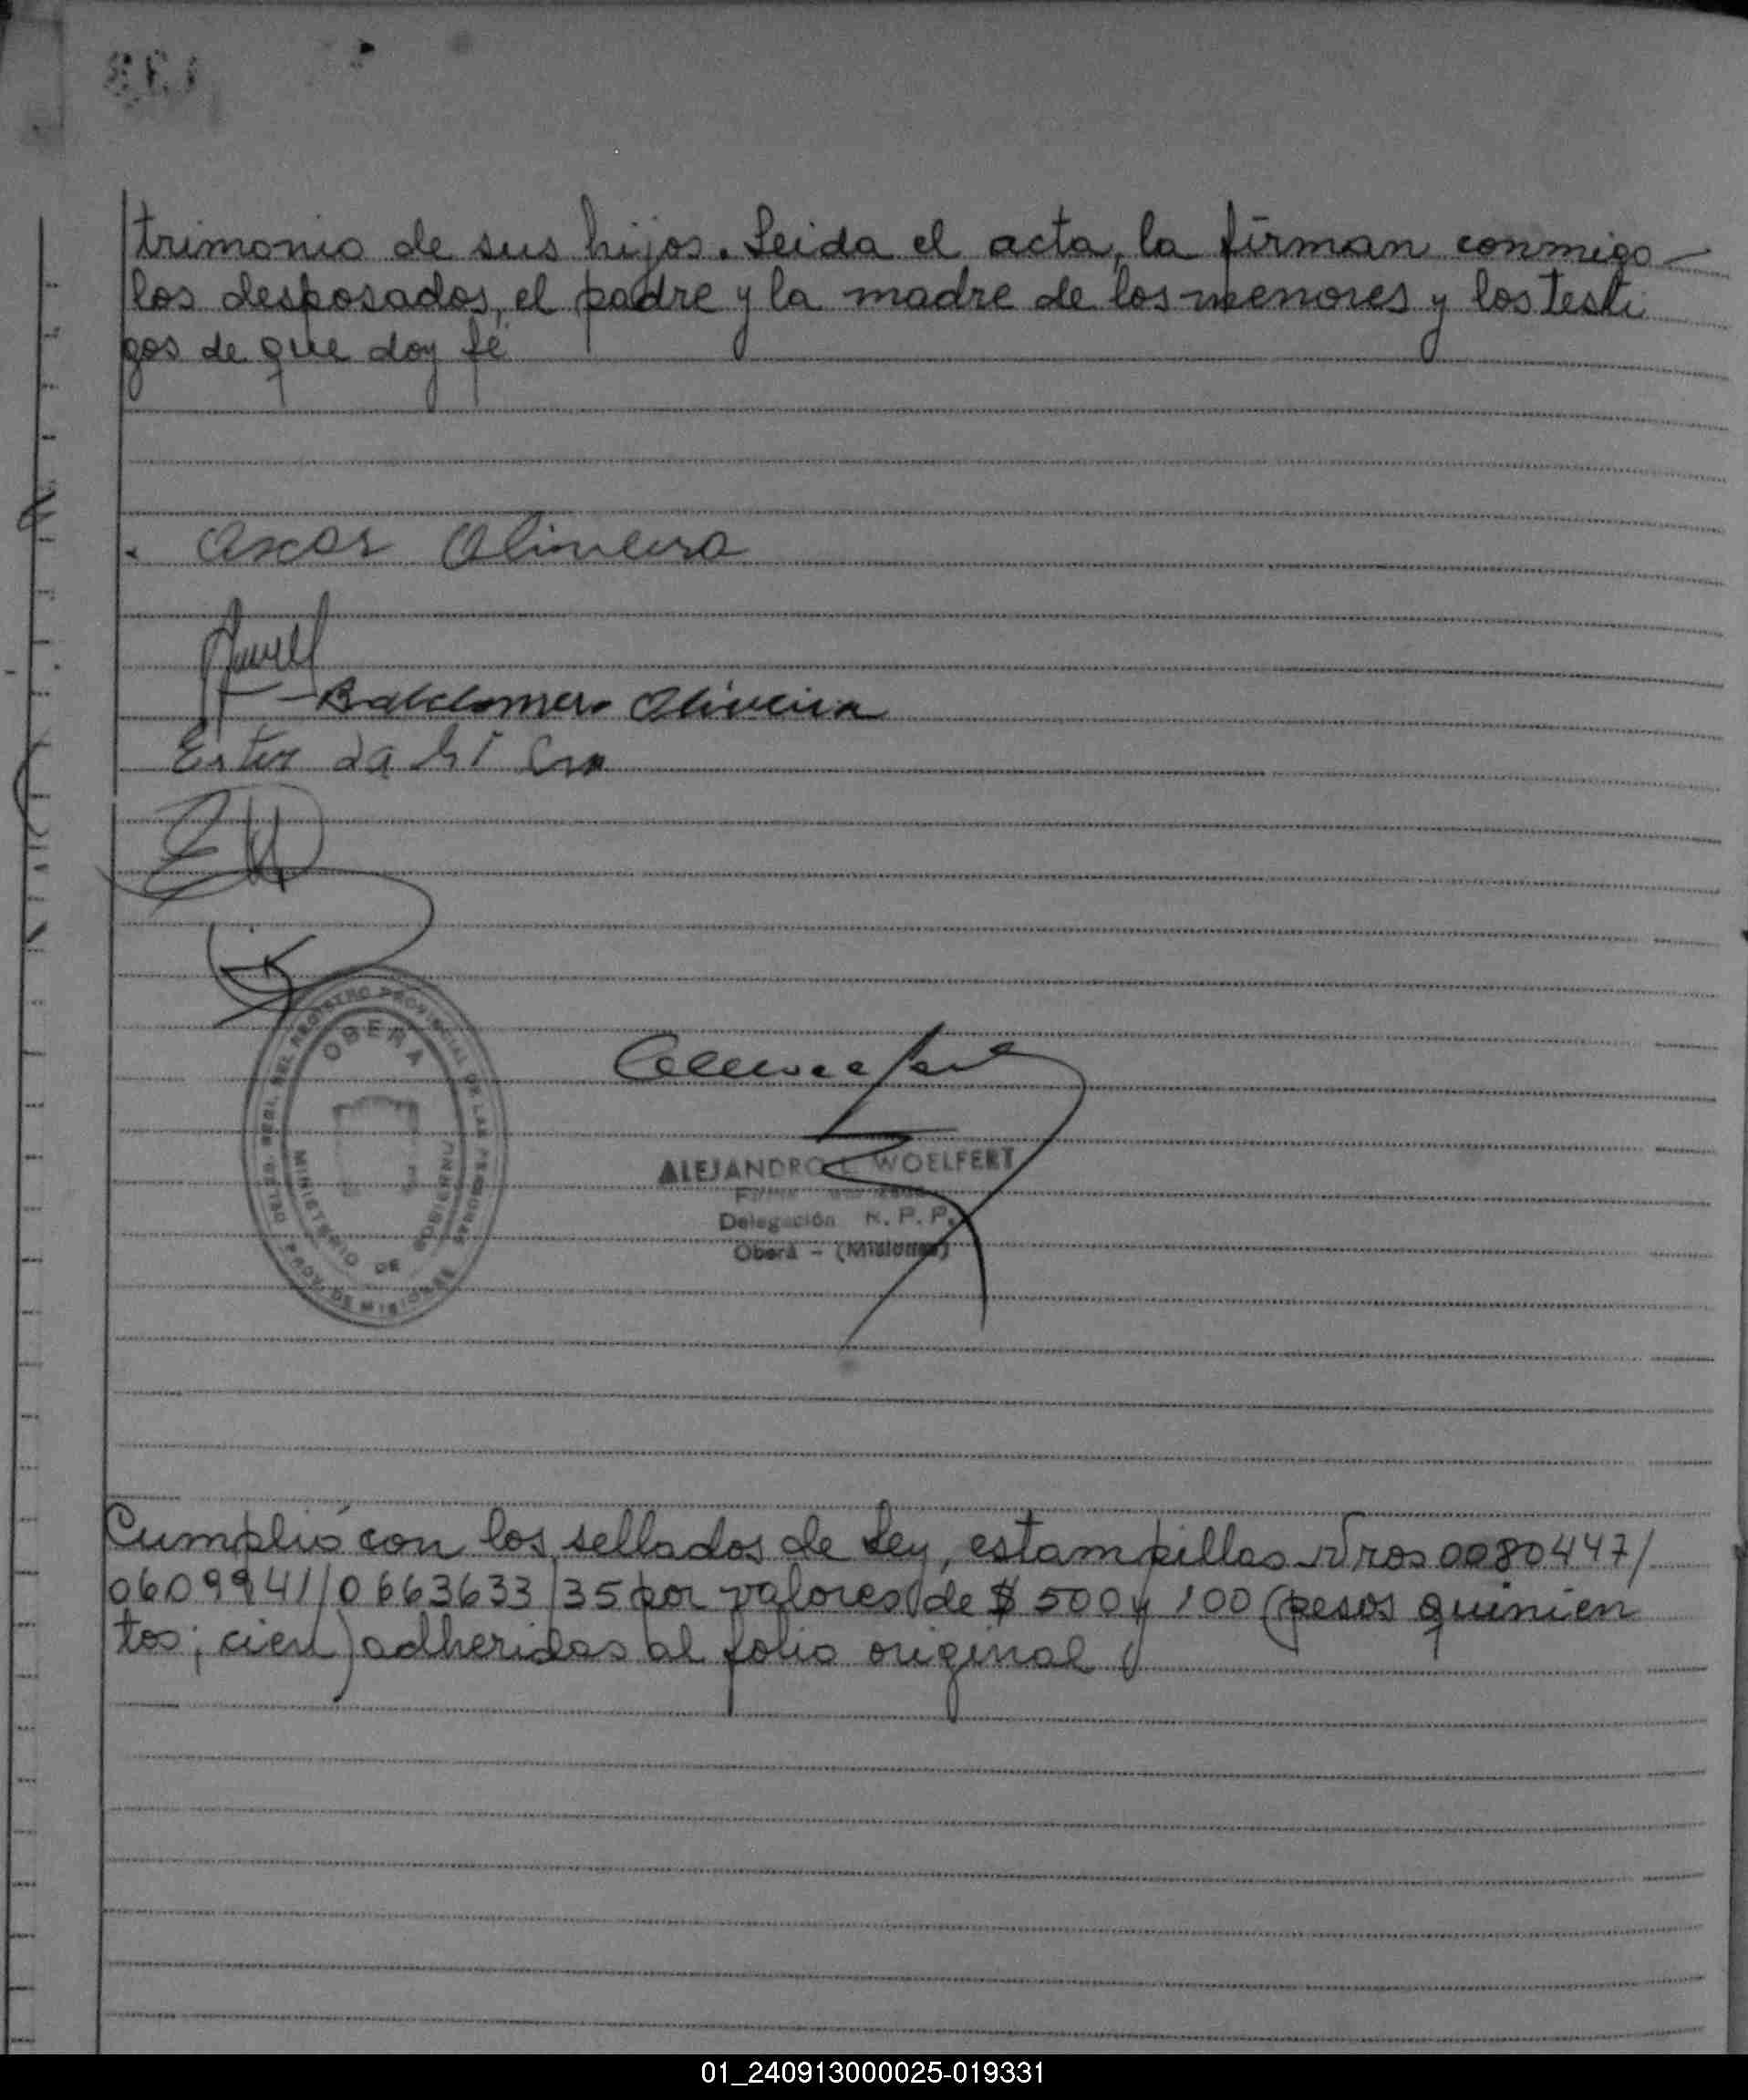 trimonio de sus hijos. Leida el acta, la firman conmigo
los desposados, el padre y la madre de los menores y los testi
gos de que doy fé
Oliveira
Oliveira
Ester da
OBERA
DELEG. REGI. DEL REGISTRO PROVINCIAL DE LAS PERSONAS
MINISTERIO DE GOBIERNO
PROV. DE MISIONES
ALEJANDRO WOELFERT
Delegación R. P. P.
Oberá - (Misiones)
Cumplió con los sellados de Ley, estampillas Nros 0080447/
0609941/0663633/35 por valores de $ 500 y 100 (pesos quinien
tos; cien) adheridas al folio original
01_240913000025-019331